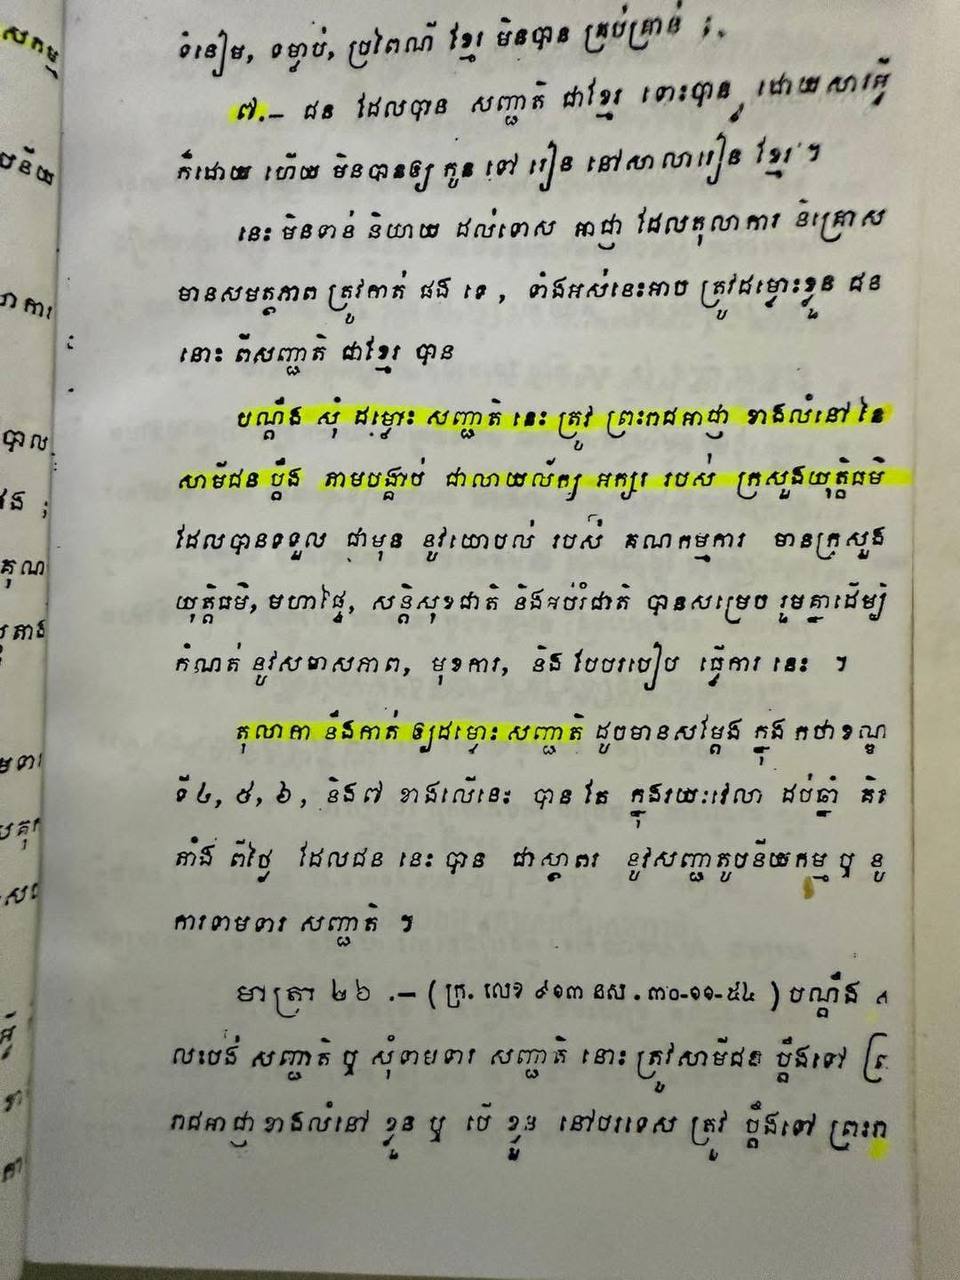 ទំនៀម, ទម្លាប់, ប្រពៃណី ខ្មែរ មិនបាន គ្រប់គ្រាន់ ;
៧.— ជន ដែលបាន សញ្ជាតិ ជាខ្មែរ ទោះបាន ដោយសារអ្វី
ក៏ដោយ ហើយ មិនបានឲ្យ កូន ទៅ រៀន នៅសាលារៀន ខ្មែរ ។
នេះ មិនទាន់ និយាយ ដល់ទោស អាជ្ញា ដែលតុលាការ និគ្រោស
មានសមត្ថភាព ត្រូវកាត់ ផង ទេ , ទាំងអស់នេះអាច ត្រូវដម្មោះខ្លួន ជន
នោះ ពីសញ្ជាតិ ជាខ្មែរ បាន
បណ្តឹង សុំ ដម្មោះ សញ្ជាតិ នេះ ត្រូវ ព្រះរាជអាជ្ញា ខាងលំនៅ នៃ
សាមីជន ប្តឹង តាមបង្គាប់ ជាលាយល័ក្ខ អក្សរ របស់ ក្រសួងយុត្តិធម៌
ដែលបានទទួល ជាមុន នូវយោបល់ របស់ គណកម្មការ មានក្រសួង
យុត្តិធម៌, មហាផ្ទៃ, សន្តិសុខជាតិ និងអប់រំជាតិ បានសម្រេច រួមគ្នាដើម្បី
កំណត់ នូវសមាសភាព, មុខការ, និង បែបរបៀប ធ្វើការ នេះ ។
តុលាកា នឹងកាត់ ឲ្យដម្មោះ សញ្ជាតិ ដូចមានសម្តែង ក្នុង កថាខណ្ឌ
ទី ៤, ៥, ៦, និង៧ ខាងលើនេះ បាន តែ ក្នុងរយៈវេលា ដប់ឆ្នាំ គិត
តាំង ពីថ្ងៃ ដែលជន នេះ បាន ជាស្ថាពរ នូវសញ្ជាតូបនីយកម្ម ឬ នូ
ការទាមទារ សញ្ជាតិ ។
មាត្រា ២៦ .— ( ក្រ. លេខ ៩១៣ នស . ៣០-១១-៥៤ ) បណ្តឹង
លះបង់ សញ្ជាតិ ឬ សុំទាមទារ សញ្ជាតិ នោះ ត្រូវសាមីជន ប្តឹងទៅ ព្រ
រាជអាជ្ញា ខាងលំនៅ ខ្លួន ឬ បើ ខ្លួន នៅបរទេស ត្រូវ ប្តឹងទៅ ព្រះរា